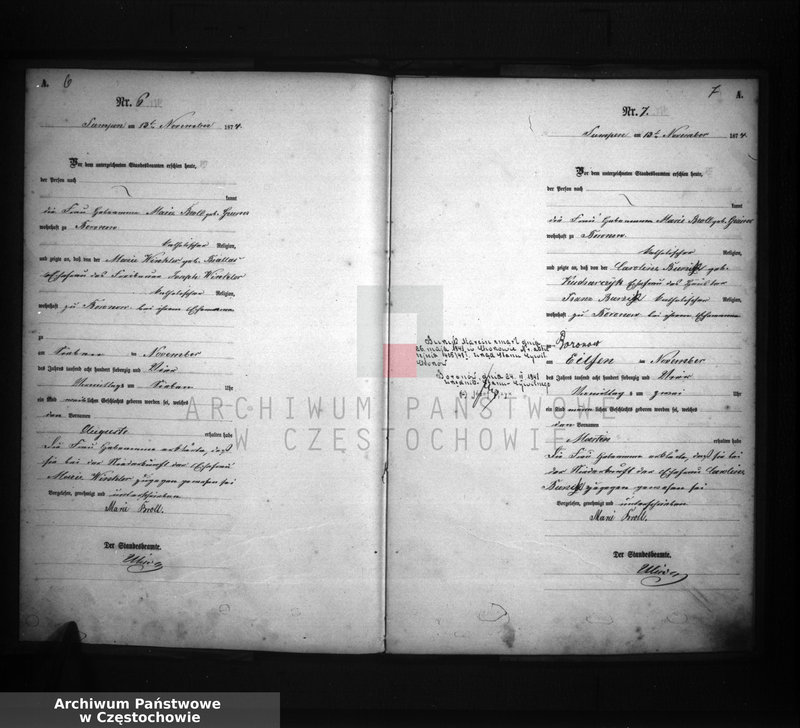 A. 6
Nr. 6
am 13ten November 1874.
Vor dem unterzeichneten Standesbeamten erschien heute,
der Person nach
kannt
die Frau Hebamme Marie Broll geb.
wohnhaft zu Boronow
katholischer Religion,
und zeigte an, daß von der Marie Winkler geb.
Ehefrau des Winkler
katholischer Religion,
wohnhaft zu Boronow bei ihrem Ehemanne
zu
am Sieben ten November
des Jahres tausend acht hundert siebenzig und Vier
Vormittags um Sieben Uhr
ein Kind weiblichen Geschlechts geboren worden sei, welches
den Vornamen
Auguste
erhalten habe
Die Frau Hebamme erklärte, daß
sie bei der Niederkunft der Ehefrau
Marie Winkler zugegen gewesen sei
Vorgelesen, genehmigt und unterschrieben
Marie Broll.
Der Standesbeamte.
7 A.
Nr. 7.
am 13ten November 1874.
Vor dem unterzeichneten Standesbeamten erschien heute,
der Person nach
kannt
die Frau Hebamme Marie Broll geb.
wohnhaft zu Boronow
katholischer Religion,
und zeigte an, daß von der Caroline geb.
Ehefrau des
Franz katholischer Religion,
wohnhaft zu Boronow bei ihrem Ehemanne
zu Boronow
am Eilften November
des Jahres tausend acht hundert siebenzig und Vier
Vormittag s um zwei Uhr
ein Kind männlichen Geschlechts geboren worden sei, welches
den Vornamen
Martin erhalten habe
Die Frau Hebamme erklärte, daß sie bei
der Niederkunft der Ehefrau Caroline
zugegen gewesen sei
Vorgelesen, genehmigt und unterschrieben
Marie Broll.
Der Standesbeamte.
Marcin zmarł dnia
26 maja
Boronów, dnia 24. 1941
ARCHIWUM PAŃSTWOWE
W CZĘSTOCHOWIE
Archiwum Państwowe
w Częstochowie